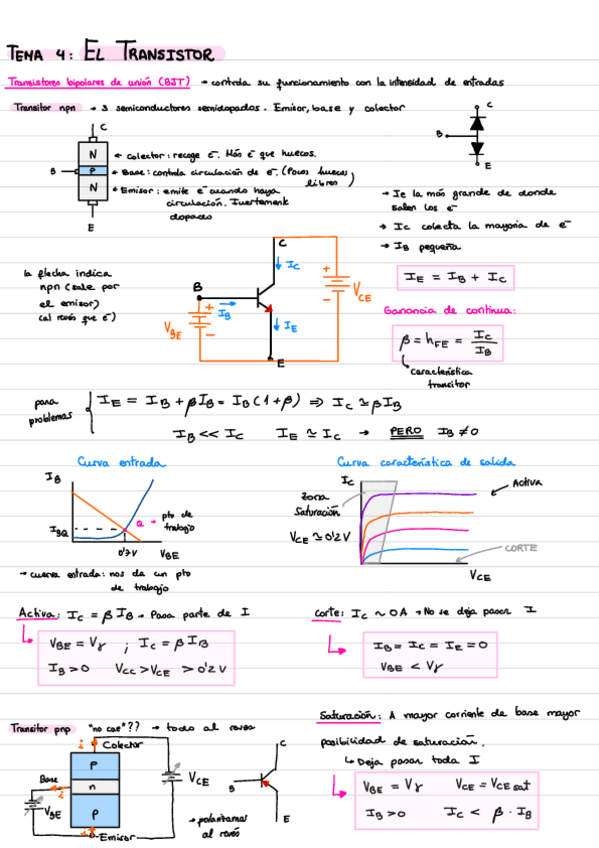 TEMA 4: EL TRANSISTOR
Transistores bipolares de unión (BJT) → controla su funcionamiento con la intensidad de entradas
Transitor npn → 3 semiconductores semidopados. Emisor, base y colector
C
N
P
N
B
E
← Colector: recoge e⁻. Más e⁻ que huecos.
← Base: controla circulación de e⁻. (Pocos huecos libres)
← Emisor: emite e⁻ cuando haya
circulación. Fuertement
dopado
C
B
E
→ Ie la más grande de donde
salen los e⁻
→ Ic colecta la mayoría de e⁻
→ IB pequeña
IE = IB + IC
la flecha indica
npn (sale por
el emisor)
(al revés que e⁻)
C
IC
B
IB
VBE
VCE
IE
E
Ganancia de continua:
β = hFE = IC / IB
característica
transitor
para
problemas
IE = IB + βIB = IB(1+β) ⇒ IC ≃ βIB
IB << IC IE ≃ IC → PERO IB ≠ 0
Curva entrada
IB
IBQ
Q → pto de
trabajo
0'7V
VBE
→ curva entrada: nos da un pto
de trabajo
Curva característica de salida
IC
Zona
Saturación
VCE ≃ 0'2V
Activa
CORTE
VCE
Activa: IC = βIB → Pasa parte de I
VBE = Vγ ; IC = βIB
IB > 0 VCC > VCE > 0'2V
Corte: IC ~ 0A → No se deja pasar I
IB = IC = IE = 0
VBE < Vγ
Transitor pnp "no cae"?? → todo al revés
i
Colector
P
n
P
Base
i
VBE
Emisor
VCE
→ polarizamos
al revés
C
B
E
Saturación: A mayor corriente de base mayor
posibilidad de saturación.
↳ Deja pasar toda I
VBE = Vγ VCE = VCE sat
IB > 0 IC < β · IB